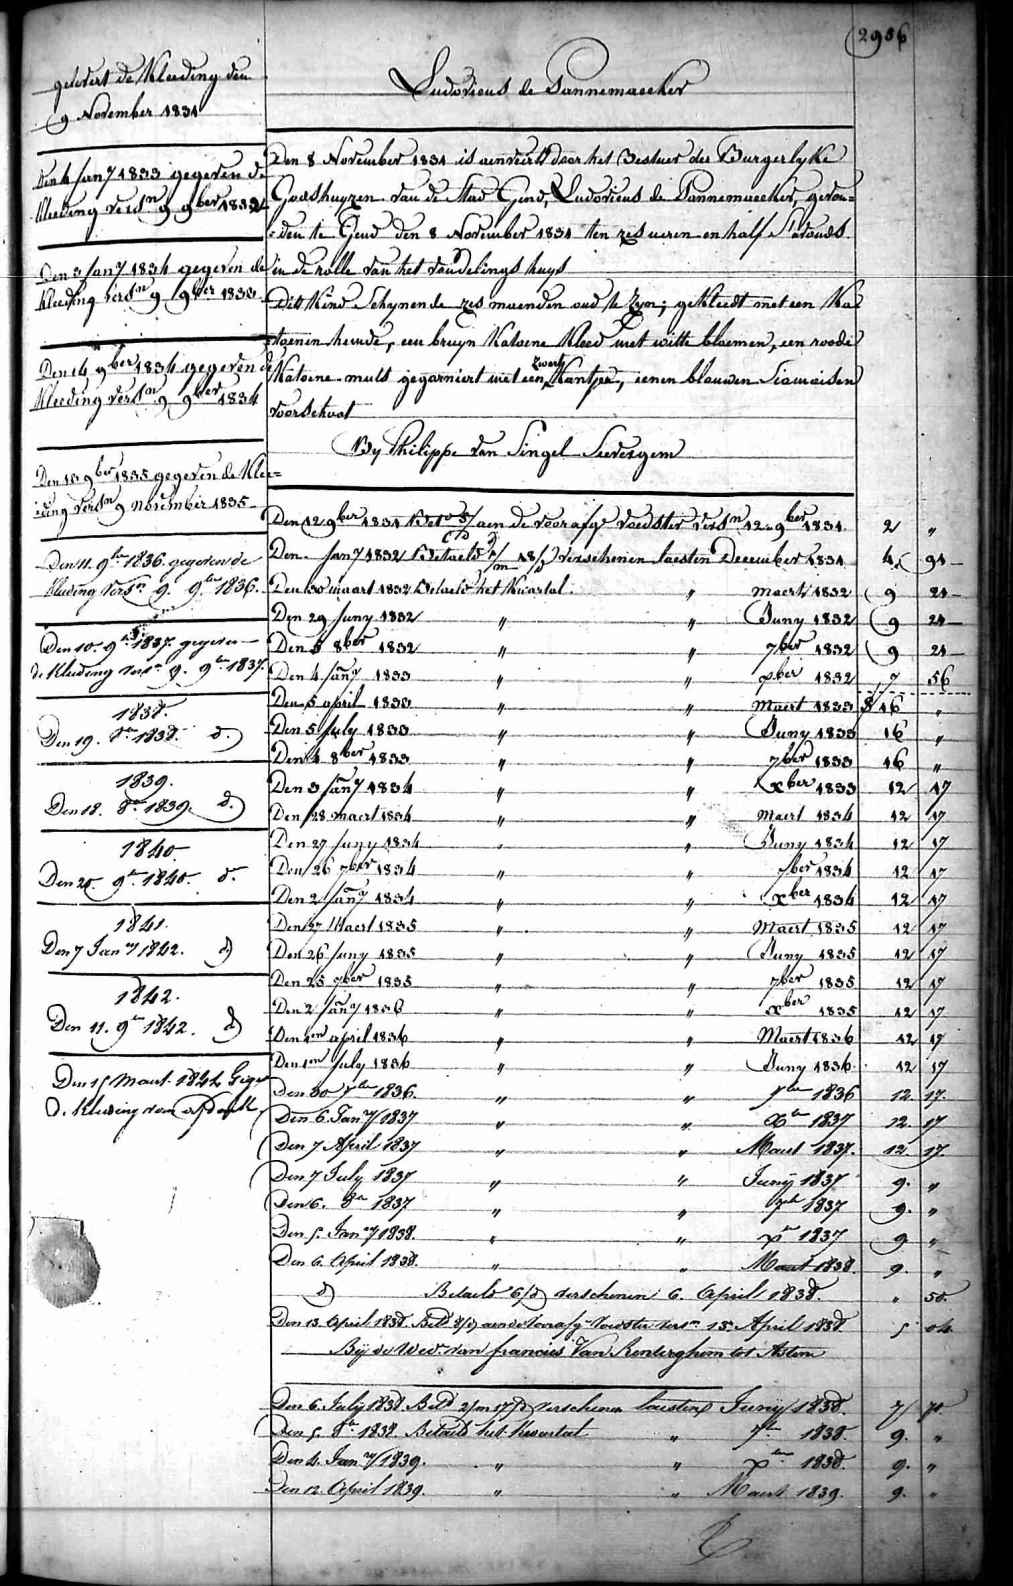 2986
Ludovicus de Pannemaecker
gelevert de Kleeding den
9 November 1831
Den 4 Jany 1833 gegeven de
Kleeding versn 9 9ber 1832
Den 3 Jany 1834 gegeven de
Kleeding versn 9 9ber 1833
Den 14 9ber 1834 gegeven de
Kleeding versn 9 9ber 1834
Den 10 9ber 1835 gegeven de Klee=
ding versn 9 november 1835
Den 11. 9ber 1836. gegeven de
kleeding versn 9. 9ber 1836.
Den 10. 9ber 1837. gegeven
de Kleeding versn 9. 9ber 1837.
1838.
Den 19. 8er 1838. d.)
1839.
Den 18. 8er 1839. d.)
1840.
Den 20. 9er 1840. d.
1841.
Den 7 Jany 1842. d)
1842.
Den 11. 9er 1842. d)
Den 15 Maart 1844 Gege
d. kleeding
Den 8 November 1831 is aenveerdt door het Bestuer der Burgerlyke
Godshuyzen van de Stad Gend, Ludovicus de Pannemaecker, gevon=
=den te Gend den 8 November 1831 ten zes ueren en half S'avonds
in de rolle van het vondelings huys
Dit Kind Schynende zes maenden oud te zyn; gekleedt met een Ka
toenen hemde, een bruyn Katoene Kleed met witte bloemen, een roode
Katoene muts gegarniert met een zwart Kantje, eenen blauwen Siamoisen
voorschoot
By Philippe van Singel Severgem
Den 12 9ber 1831 Betd 5/ aen de voorafge voedster versn 12 9ber 1831 2 "
Den Jany 1832 Betaeld 1/m 18/d verschenen laesten December 1831 4 94
Den 30 maart 1832 Betaeld het Kwartal " Maert 1832 9 24
Den 29 Juny 1832 " " Juny 1832 9 24
Den 5 8ber 1832 " " 7ber 1832 9 24
Den 4 Jany 1833 " " xber 1832 7 56
Den 5 april 1833 " " Maert 1833 16 "
Den 5 July 1833 " " Juny 1833 16 "
Den 4 8ber 1833 " " 7ber 1833 16 "
Den 3 Jany 1834 " " xber 1833 12 17
Den 28 maert 1834 " " Maert 1834 12 17
Den 27 Juny 1834 " " Juny 1834 12 17
Den 26 7ber 1834 " " 7ber 1834 12 17
Den 2 Jany 1834 " " xber 1834 12 17
Den 27 Maert 1835 " " Maert 1835 12 17
Den 26 Juny 1835 " " Juny 1835 12 17
Den 25 7ber 1835 " " 7ber 1835 12 17
Den 2 Jany 1836 " " xber 1835 12 17
Den 1en april 1836 " " Maert 1836 12 17
Den 1en July 1836 " " Juny 1836 12 17
Den 30 7ber 1836. " " 7ber 1836 12. 17.
Den 6. Jany 1837 " " xer 1837 12. 17
Den 7 April 1837 " " Maert 1837. 12. 17.
Den 7 July 1837 " " Junÿ 1837 9. "
Den 6. 8er 1837 " " 7er 1837 9. "
Den 5. Jany 1838. " " xer 1837 9 "
Den 6. April 1838. " " Maert 1838. 9. "
d) Betaeld 6/d) verschenen 6. April 1838. " 50.
Den 13. April 1838. Betd 8/d) aen de voorafge voedster versn 15. April 1838. 5 04.
Bij de Wede van francies Van Renterghem tot Astene
Den 6 July 1838. Betd 2/m 17/d verschenen laesten Junij 1838. 7 70
Den 5. 8er 1838. Betaeld het kwartal " 7er 1838. 9. "
Den 4. Jany 1839. " " xer 1838. 9. "
Den 12 April 1839. " " Maert 1839. 9. "